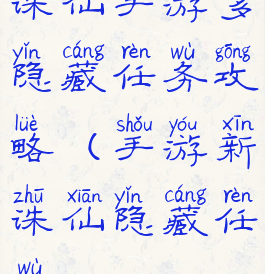 诛仙手游多
yǐn cáng rèn wù gōng
隐藏任务攻
lüè shǒu yóu xīn
略（手游新
zhū xiān yǐn cáng rèn
诛仙隐藏任
wù